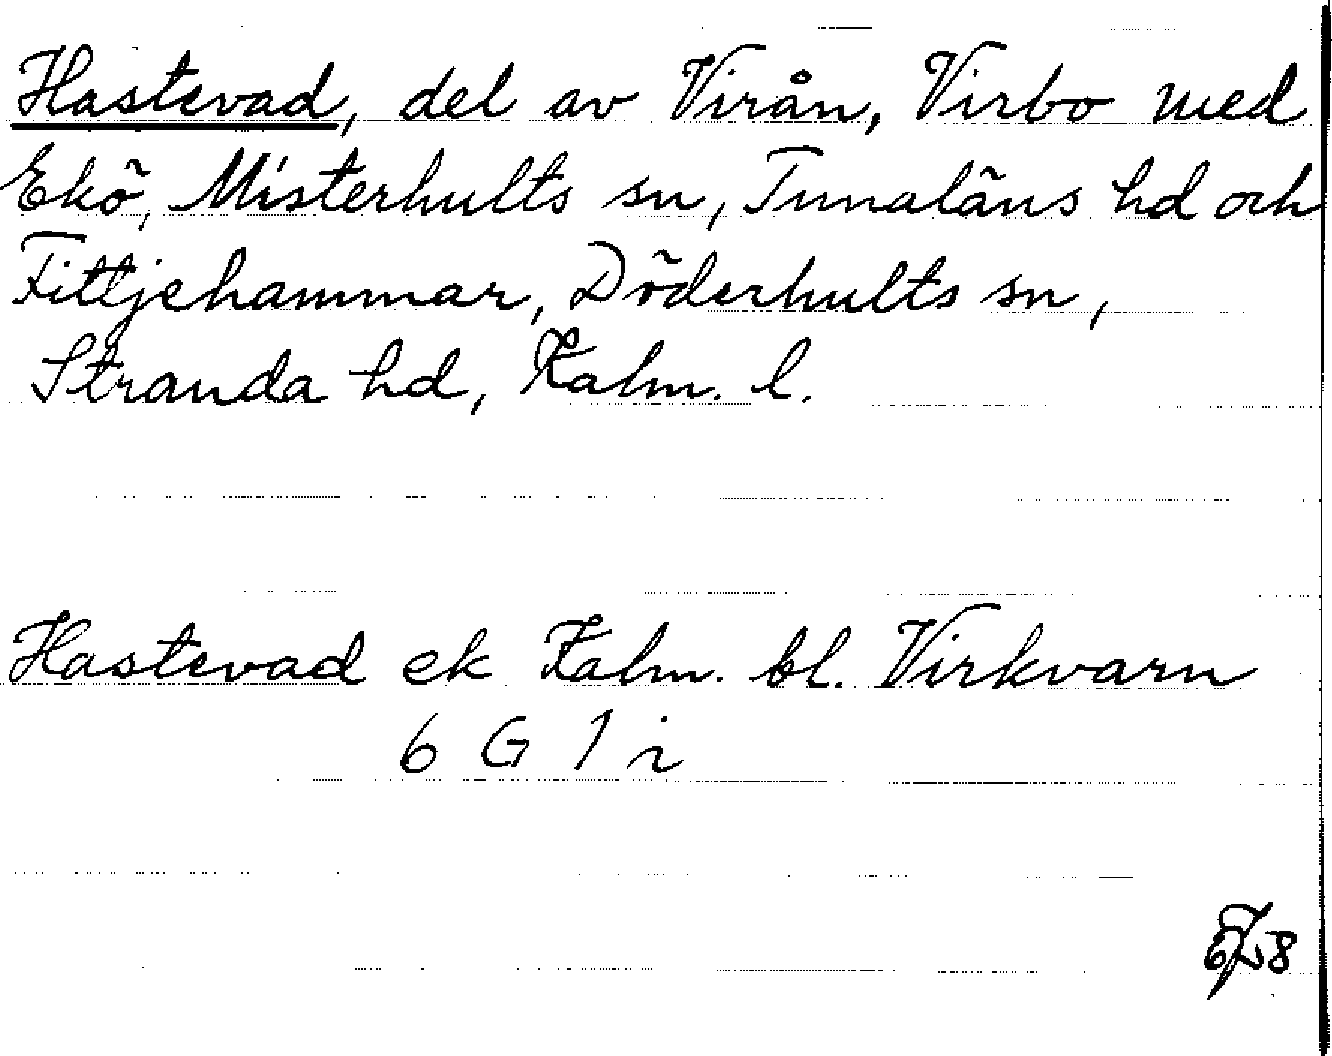 Hastevad, del av Virån, Virbo med
Ekö, Misterhults sn, Tunaläns hd och
Fittjehammar, Döderhults sn,
Stranda hd, Kalm. l.
Hastevad ek Kalm. bl. Virkvarn
6 G 1 i